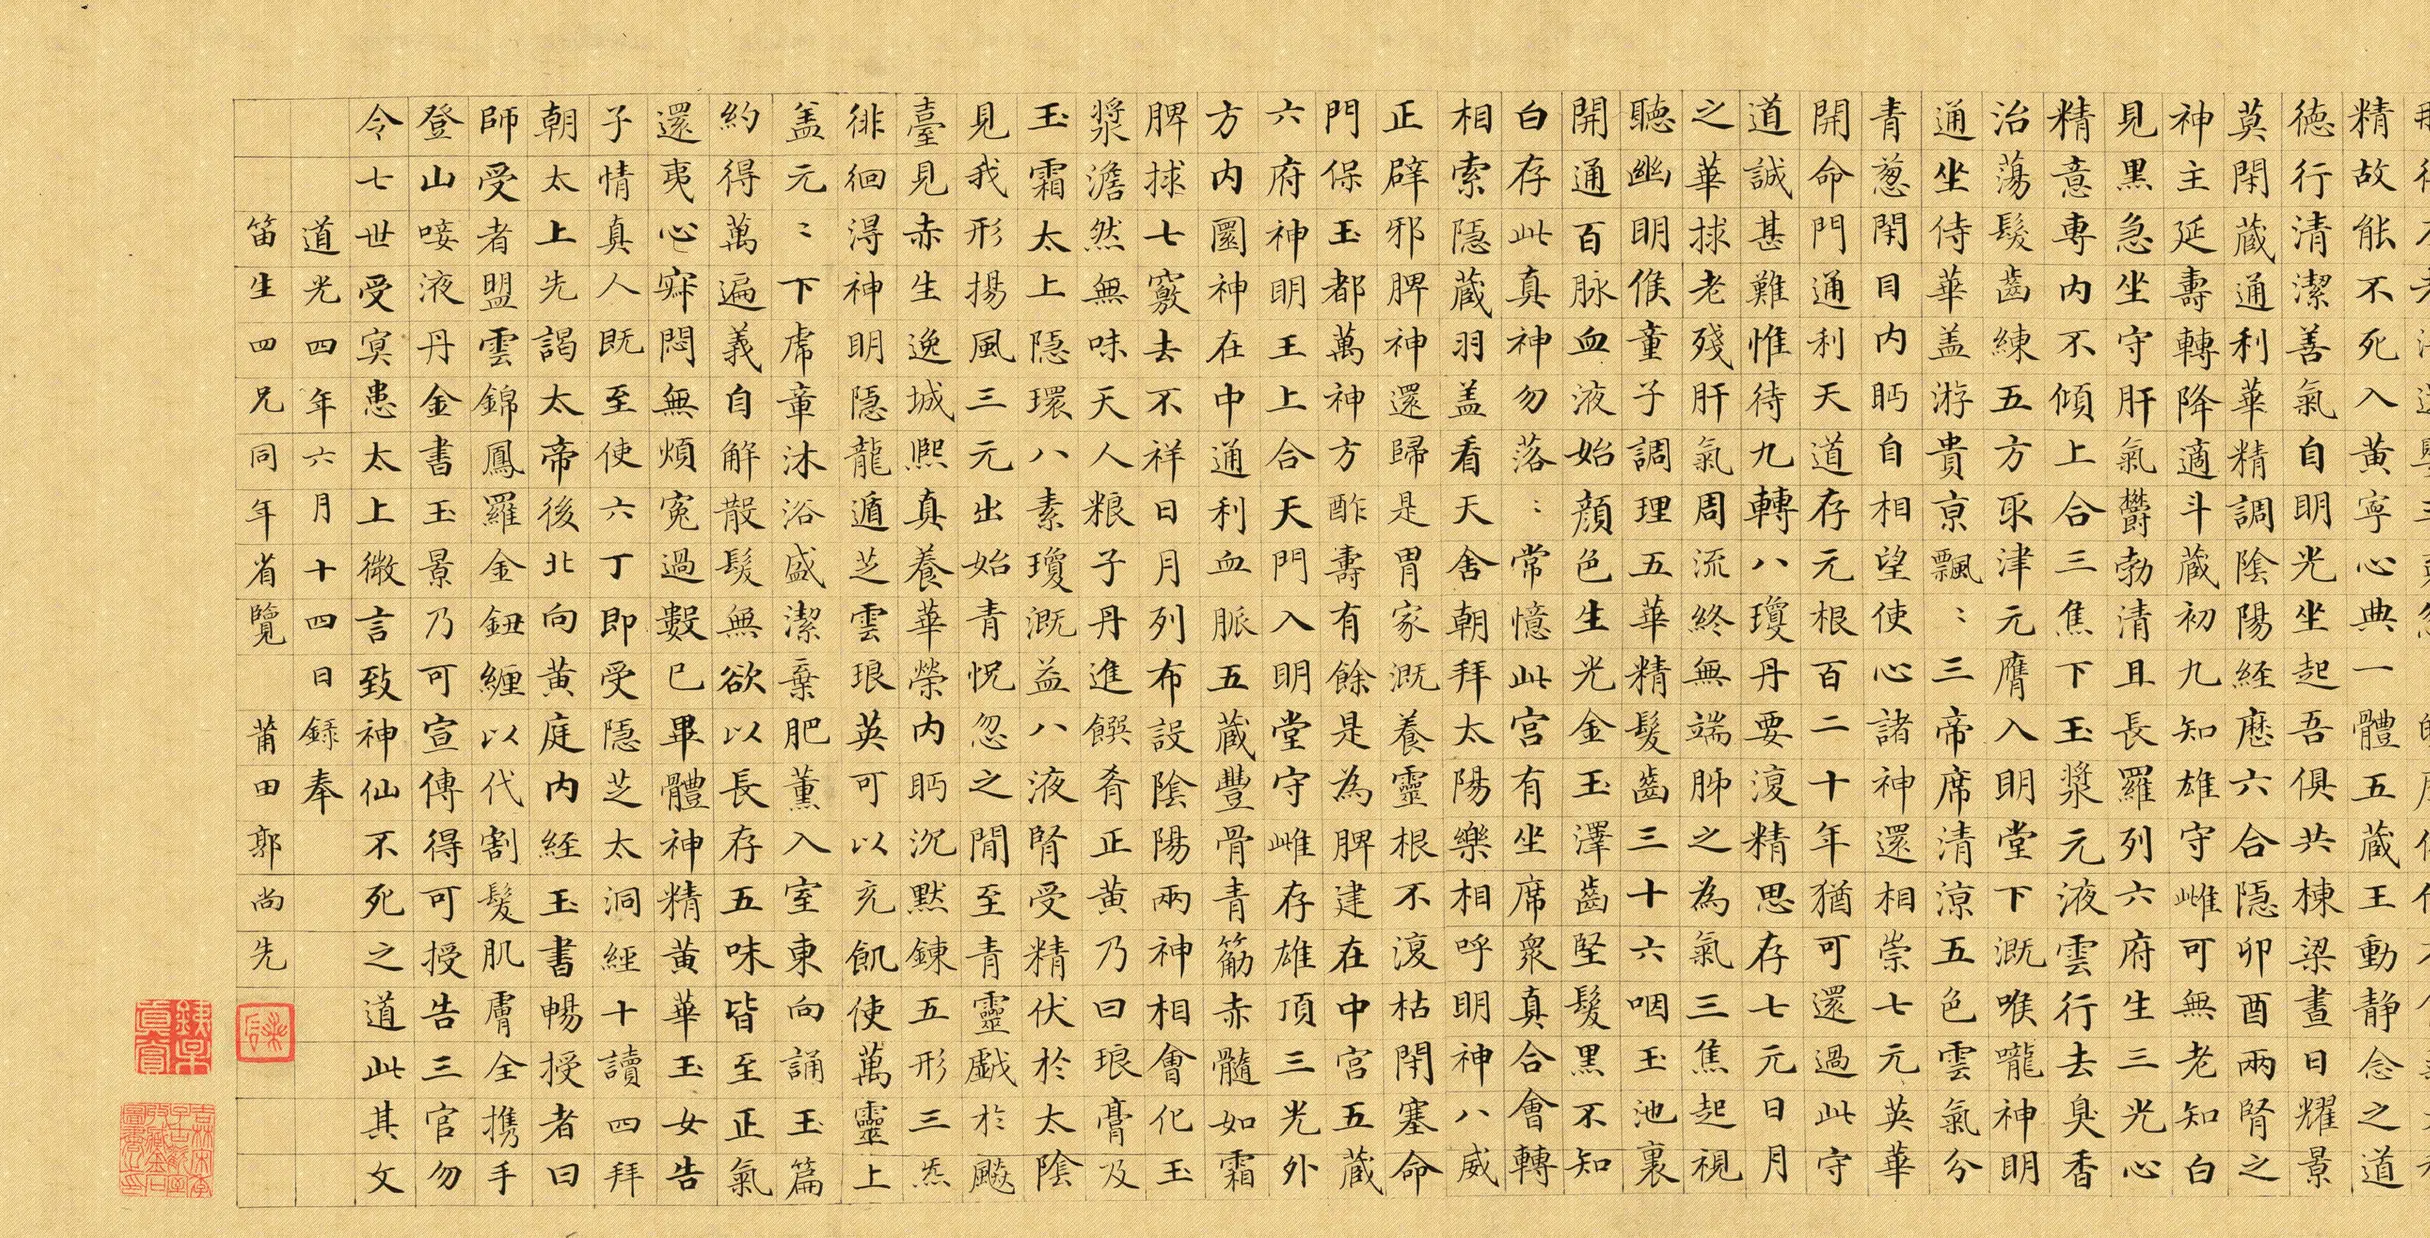 精故能不死入黄寧心典一體五蔵王動静念之道
徳行清潔善氣自明光坐起吾俱共棟梁晝日耀景
莫閇蔵通利華精調陰陽経歴六合隱卯酉兩腎之
神主延壽轉降適斗蔵初九知雄守雌可無老知白
見黒急坐守肝氣欝勃清且長羅列六府生三光心
精意専内不傾上合三焦下玉漿元液雲行去臭香
治蕩髮齒練五方取津元膺入明堂下溉喉嚨神明
通坐侍華盖游貴京飄〻三帝席清涼五色雲氣分
青葱閇目内眄自相望使心諸神還相崇七元英華
開命門通利天道存元根百二十年猶可還過此守
道誠甚難惟待九轉八瓊丹要復精思存七元日月
之華捄老殘肝氣周流終無端肺之為氣三焦起視
聽幽明候童子調理五華精髮齒三十六咽玉池裏
開通百脉血液始顔色生光金玉澤齒堅髮黒不知
白存此真神勿落〻常憶此宮有坐席衆真合會轉
相索隱蔵羽盖看天舍朝拜太陽樂相呼明神八威
正辟邪脾神還歸是胃家溉養靈根不復枯閇塞命
門保玉都萬神方酢壽有餘是為脾建在中宮五蔵
六府神明王上合天門入明堂守雌存雄頂三光外
方内圓神在中通利血脈五蔵豐骨青筋赤髓如霜
脾捄七竅去不祥日月列布設陰陽兩神相會化玉
漿澹然無味天人粮子丹進饌肴正黄乃曰琅膏及
玉霜太上隱環八素瓊溉益八液腎受精伏於太陰
見我形揚風三元出始青怳忽之間至青靈戲於飈
臺見赤生逸城熙真養華榮内眄沉默鍊五形三炁
徘徊淂神明隱龍遁芝雲琅英可以充飢使萬靈上
盖元〻下虎童沐浴盛潔棄肥薰入室東向誦玉篇
約得萬遍義自解散髮無欲以長存五味皆至正氣
還夷心寂悶無煩寃過數已畢體神精黄華玉女告
子情真人既至使六丁即受隱芝太洞經十讀四拜
朝太上先謁太帝後北向黄庭内経玉書暢授者曰
師受者盟雲錦鳳羅金鈕纏以代割髮肌膚全携手
登山唼液丹金書玉景乃可宣傳得可授告三官勿
令七世受冥患太上微言致神仙不死之道此其文
道光四年六月十四日録奉
笛生四兄同年省覽 莆田郭尚先